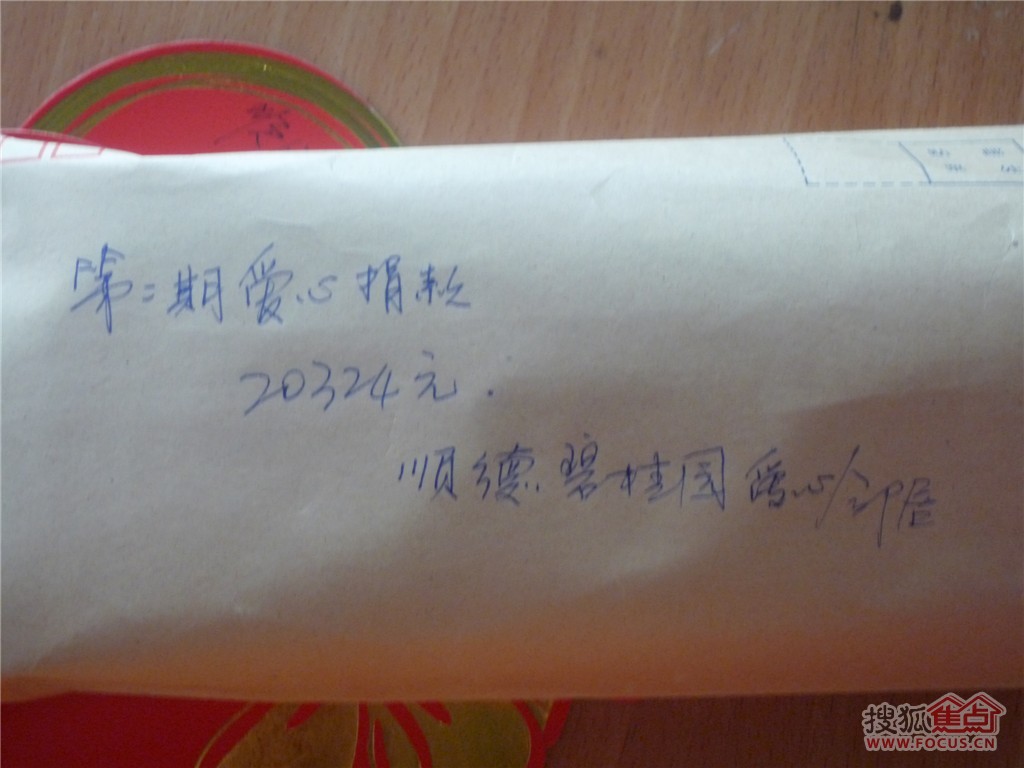 第二期爱心捐款
20324元.
顺德碧桂园爱心邻居
搜狐焦点
WWW.FOCUS.CN